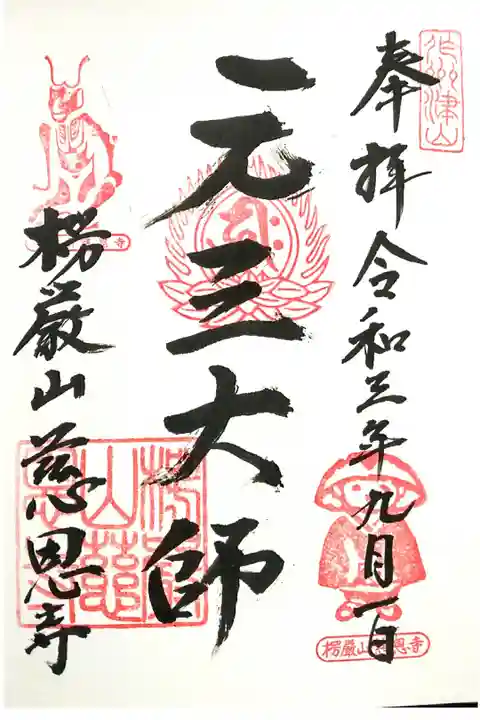 作州津山
奉拝令和三年九月一日
楞厳山慈恩寺
元三大師
楞嚴山慈恩寺